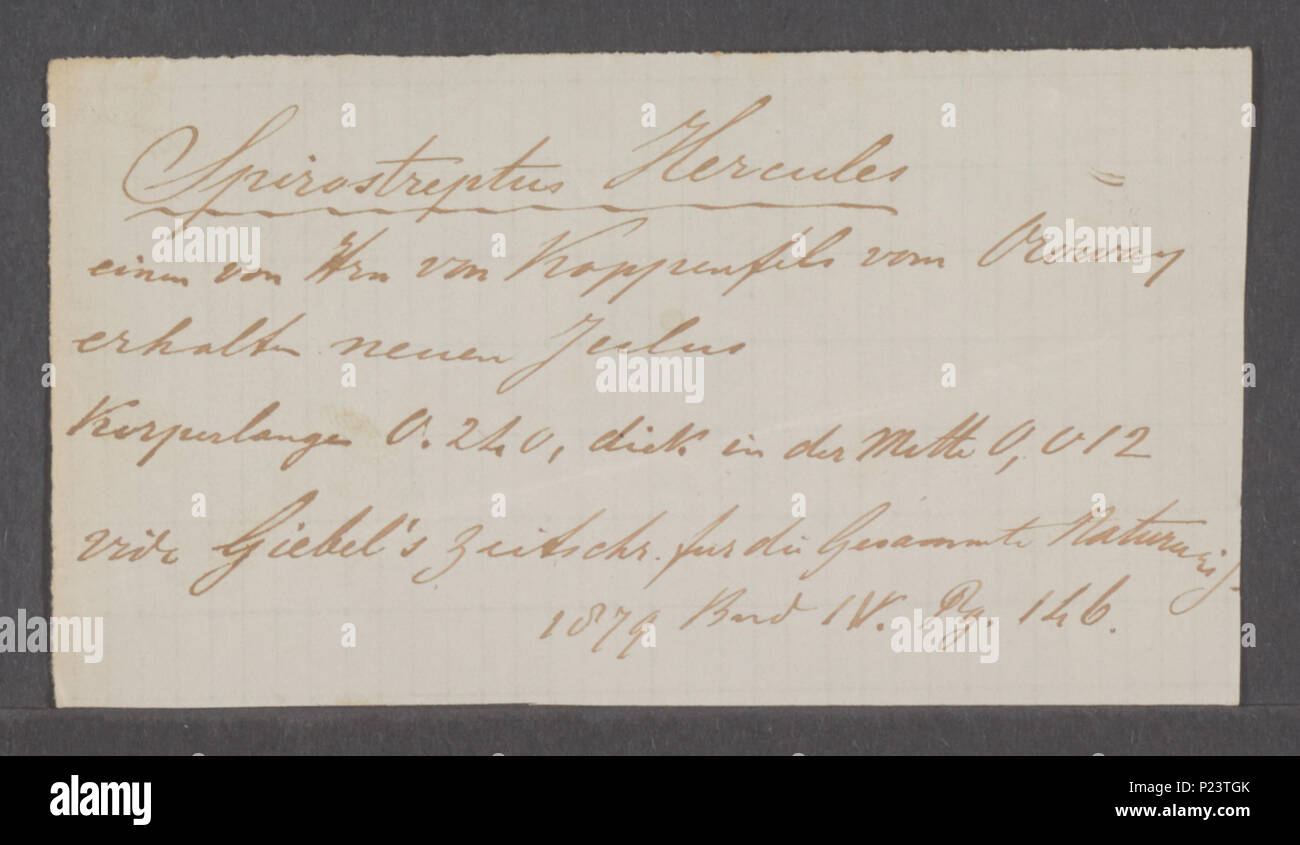 Spirostreptus Hercules
einen von Hrn von Koppenfels vom
erhalten neuen Julus
Korperlange 0.240, dick in der Mitte 0,012
vide Giebel's Zeitschr. fur die Gesammte Naturwis
1879 Band IV. Pg. 146.
alamy
Image ID: P23TGK
www.alamy.com